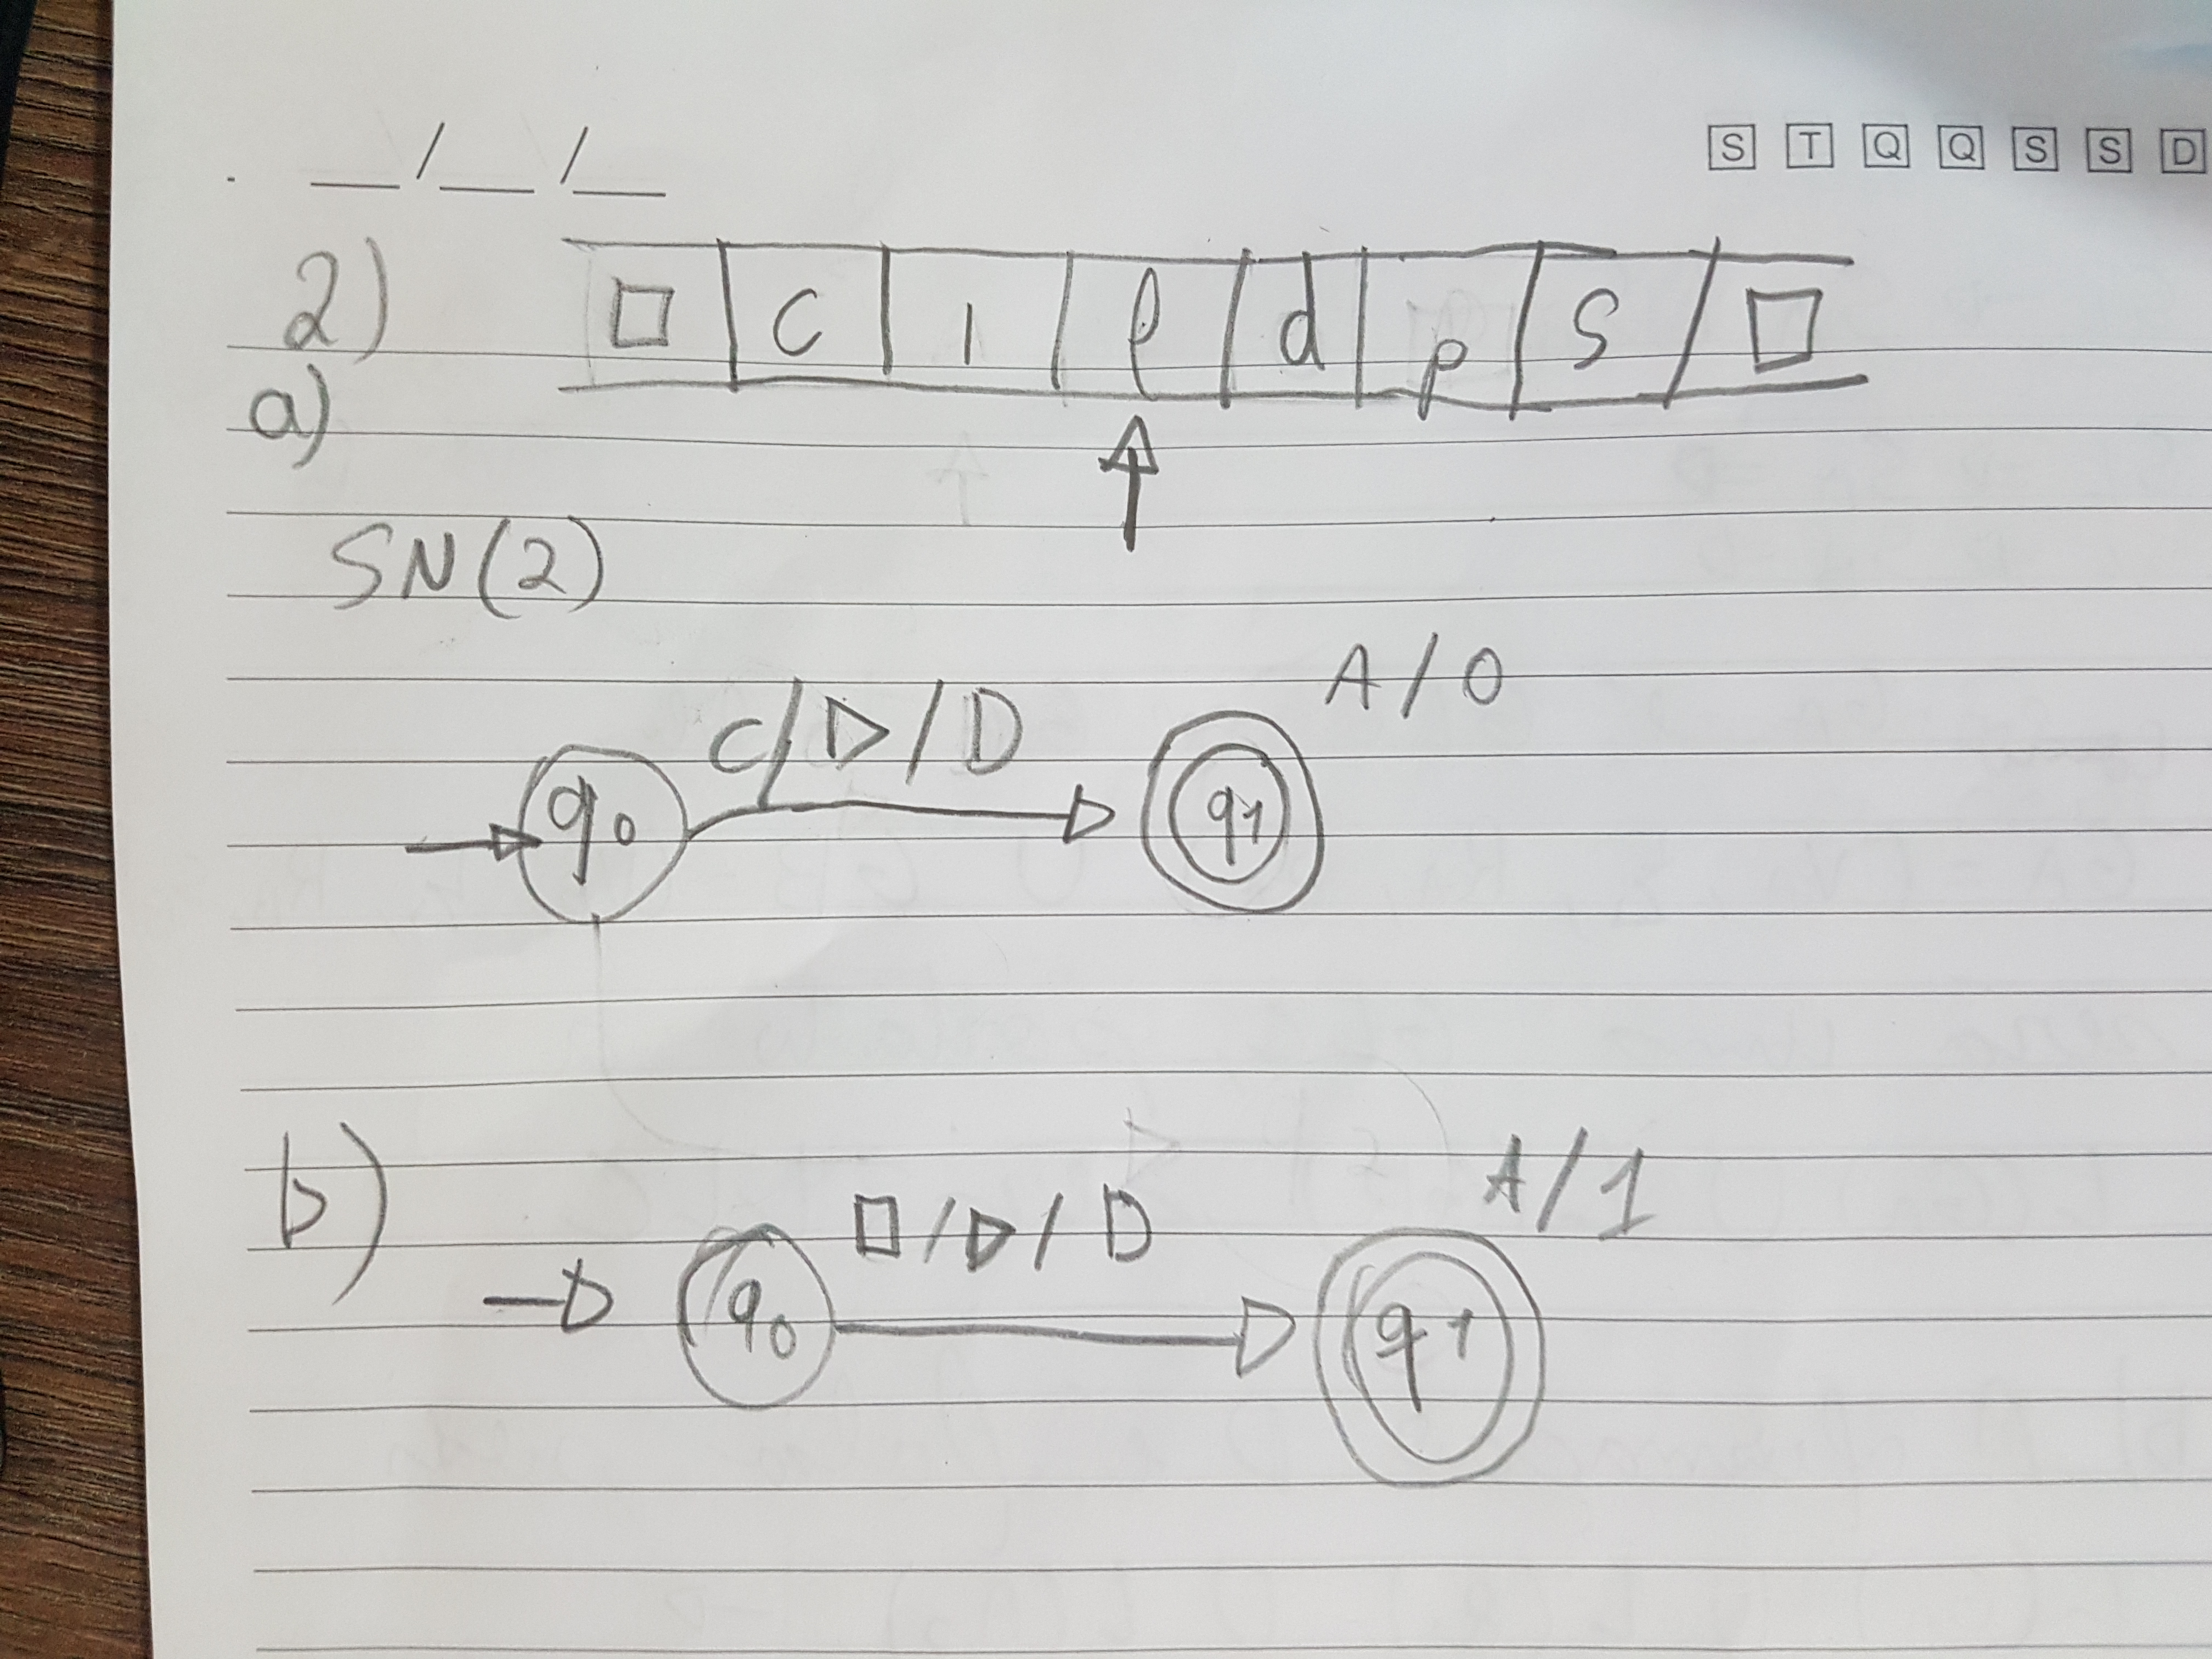 __/__/__
S T Q Q S S D
2) □ c i l d p s □
a)
SN(2)
A/0
C/▷/D
q0 q1
b)
A/1
□/▷/D
q0 q1